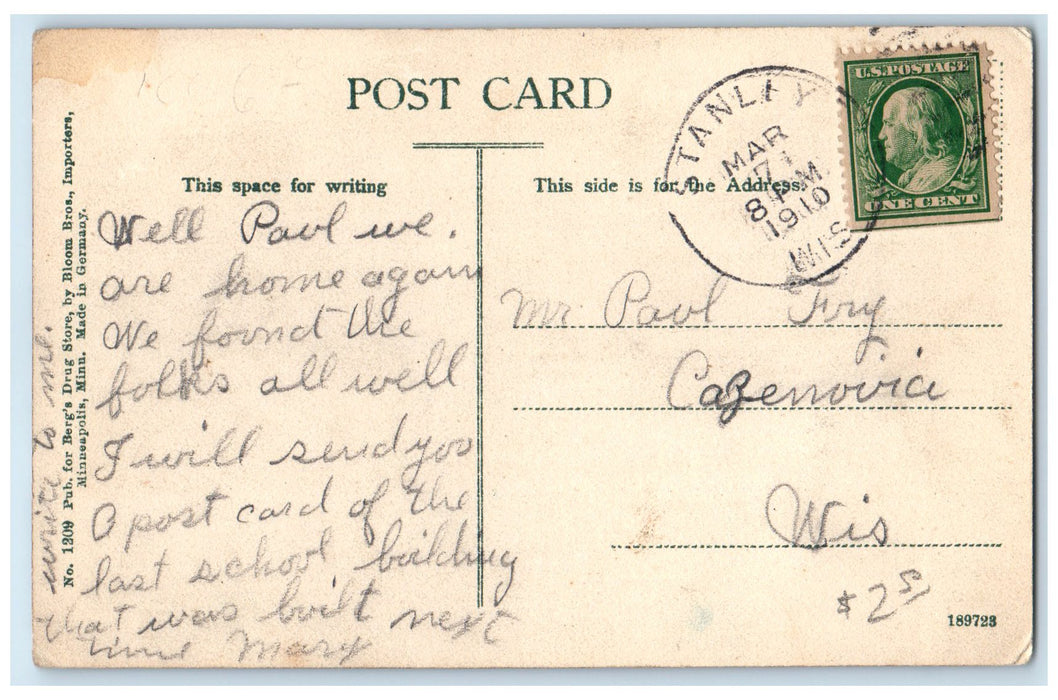 POST CARD
This space for writing
This side is for the Address.
Well Paul we.
are home again
We found the
folks all well
I will send you
a post card of the
last school building
that was built next
time Mary
write to me.
No. 1209 Pub. for Berg's Drug Store, by Bloom Bros., Importers,
Minneapolis, Minn. Made in Germany.
STANLEY
MAR
8 PM
1910
WIS
U.S. POSTAGE
ONE CENT
Mr Paul Fry
Cazenovia
Wis
$2
189723